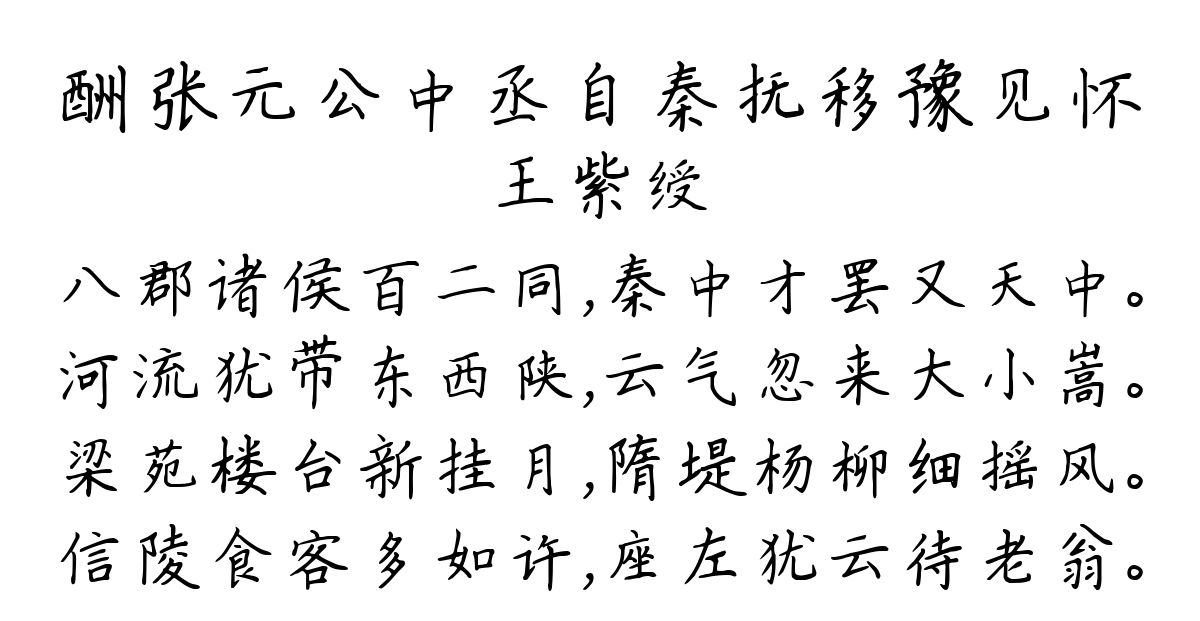 酬张元公中丞自秦抚移豫见怀
王紫绶
八郡诸侯百二同,秦中才罢又天中。
河流犹带东西陕,云气忽来大小嵩。
梁苑楼台新挂月,隋堤杨柳细摇风。
信陵食客多如许,座左犹云待老翁。